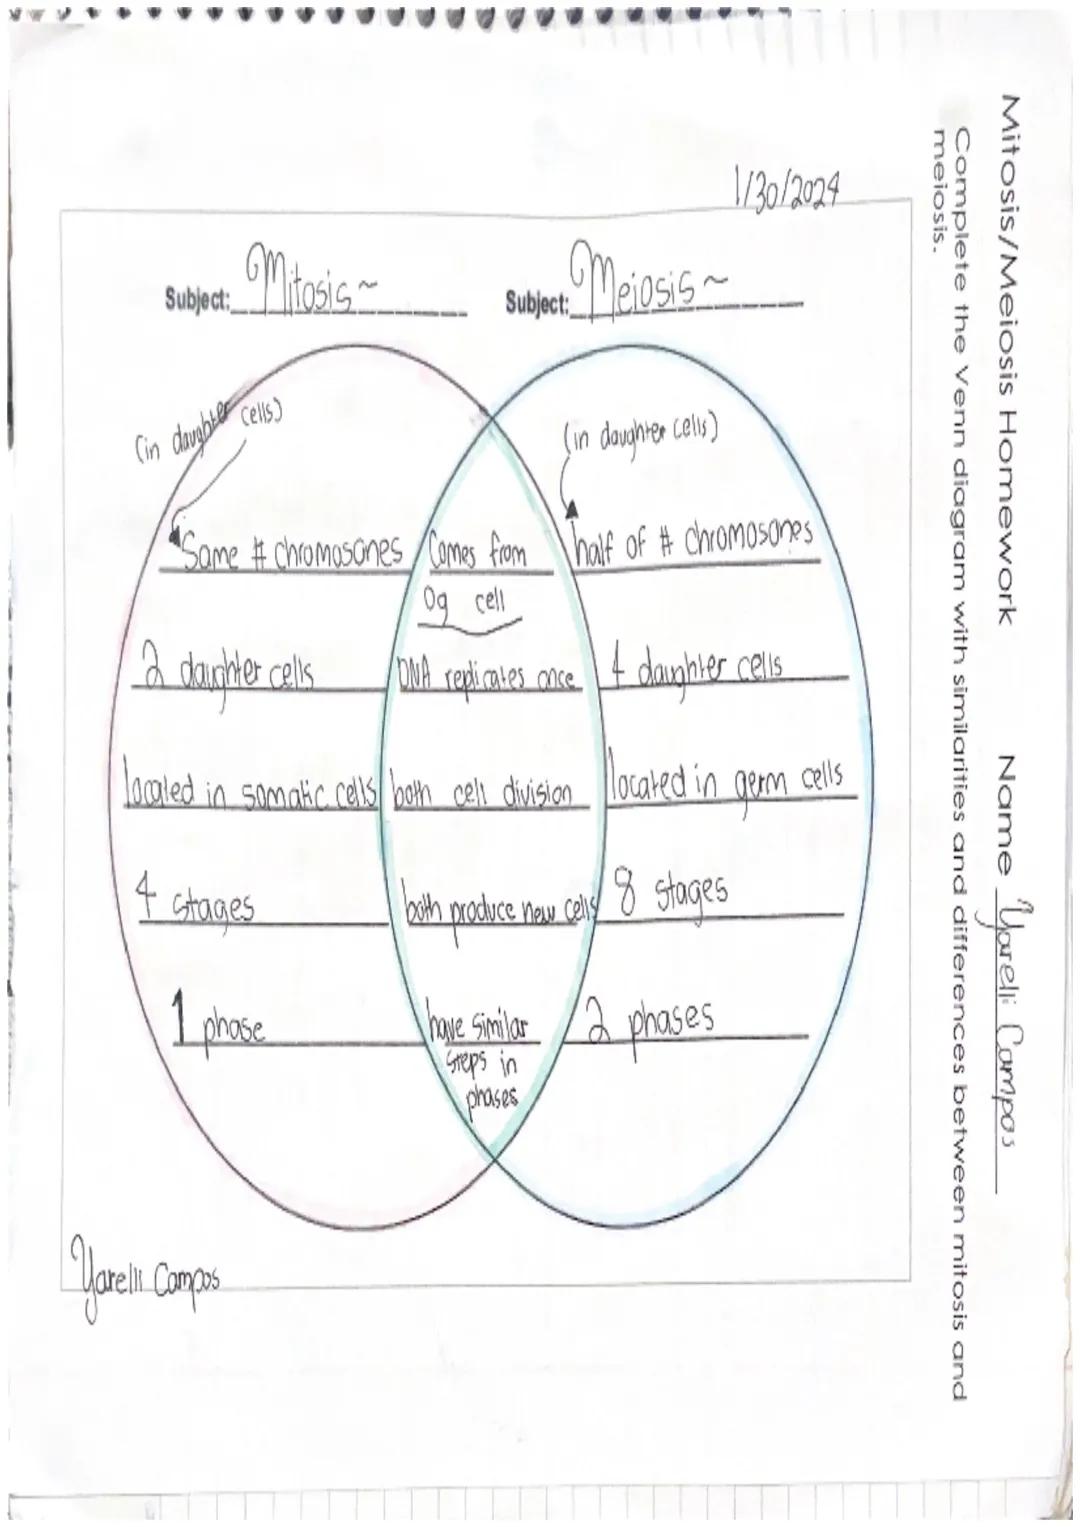 Mitosis/Meiosis Homework Name Yarelli Campos
Complete the Venn diagram with similarities and differences between mitosis and
meiosis.
1/30/2024
Subject: Mitosis~
Subject: Meiosis~
(in daughter cells)
Same # chromosomes
2 daughter cells
located in somatic cells
4 stages
1 phase
Comes from
Og cell
DNA replicates once
both cell division
both produce new cells
have similar
steps in
phases
(in daughter cells)
half of # chromosomes
4 daughter cells
located in germ cells
8 stages
2 phases
Yarelli Campos